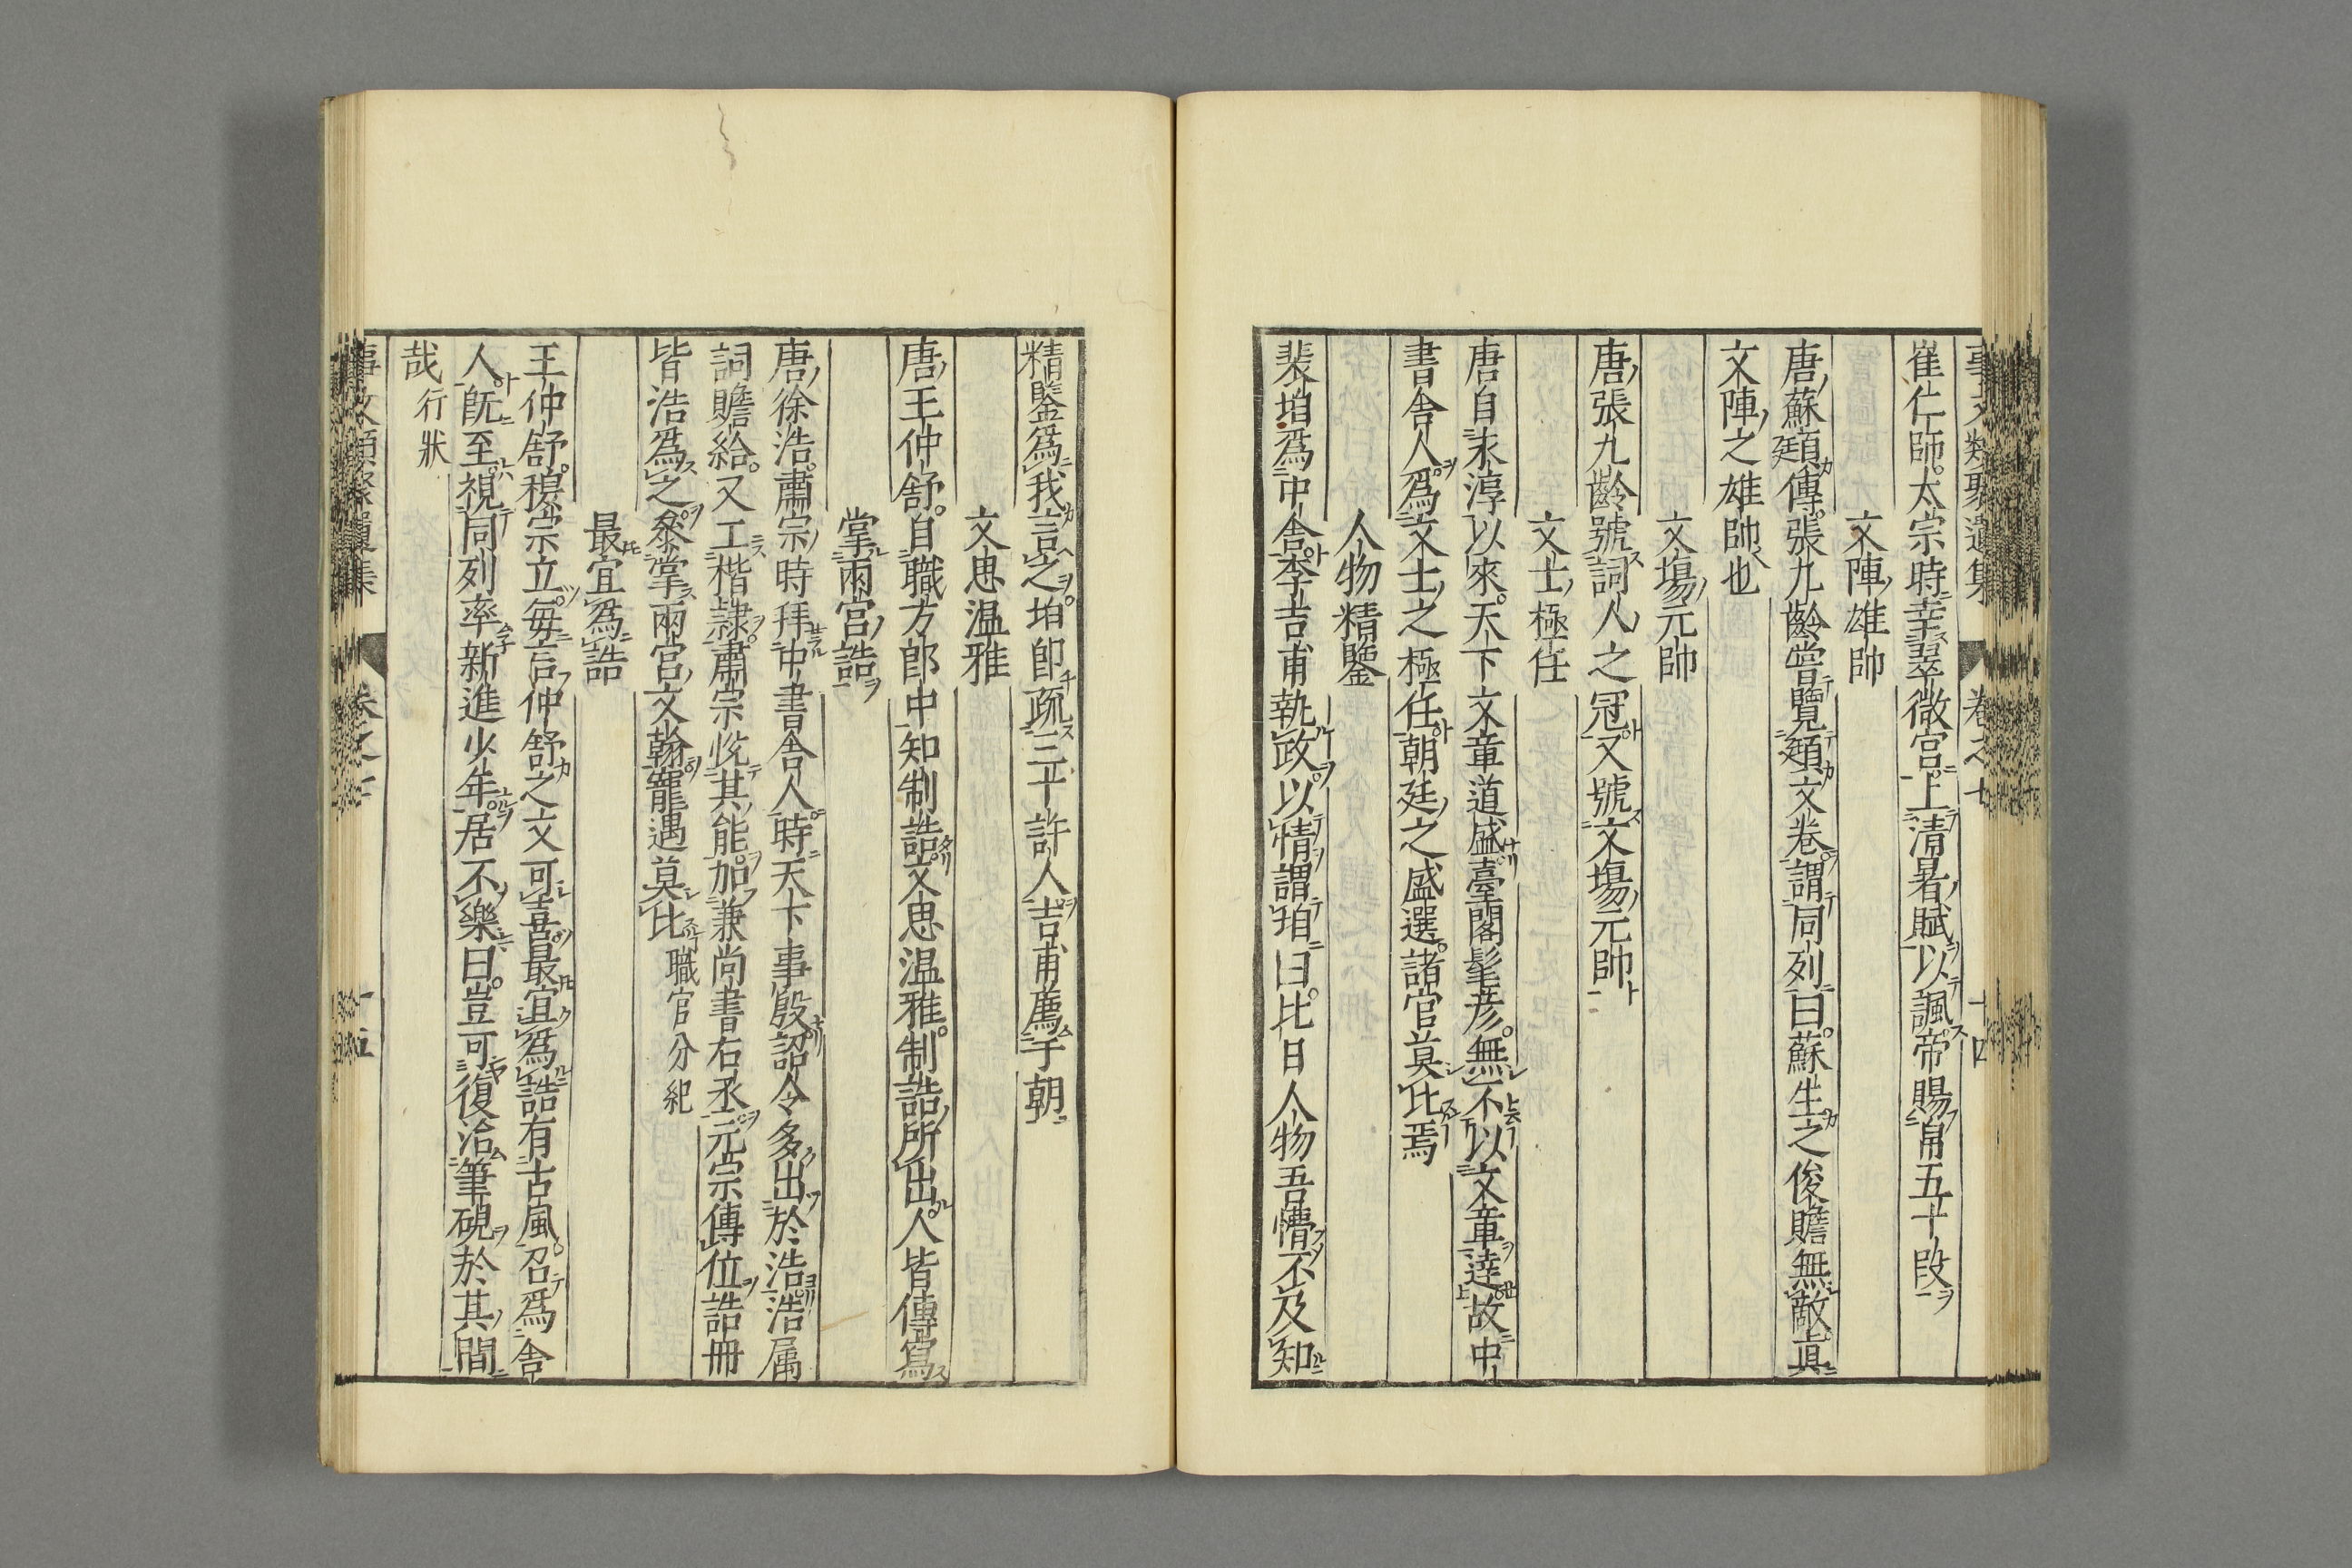 崔仁師太宗時幸翠微宮上清暑賦以諷帝賜帛五十段
文陣雄帥
唐蘇頲傳張九齡嘗覽頲文卷謂同列曰蘇生之俊贍無敵眞
文陣之雄帥也
文塲元帥
唐張九齡號詞人之冠又號文塲元帥
文士極任
唐自末淳以來天下文章道盛臺閣髦彦無不以文章達故中
書舍人爲文士之極任朝廷之盛選諸官莫比焉
人物精鑒
裴垍爲中舍李吉甫執政以情謂垍曰比日人物吾懵不及知
精鑒爲我言之垍卽疏三十許人吉甫薦于朝
文思温雅
唐王仲舒自職方郎中知制誥文思温雅制誥所出人皆傳寫
掌兩宮誥
唐徐浩肅宗時拜中書舍人時天下事殷詔令多出於浩浩属
詞贍給又工楷隷肅宗悦其能加兼尚書右丞元宗傳位誥冊
皆浩爲之叅掌兩宮文翰寵遇莫比職官分紀
最宜爲誥
王仲舒穆宗立每言仲舒之文可喜最宜爲誥有古風召爲舍
人旣至視同列率新進少年居不樂曰豈可復治筆硯於其間
哉行狀
卷之七